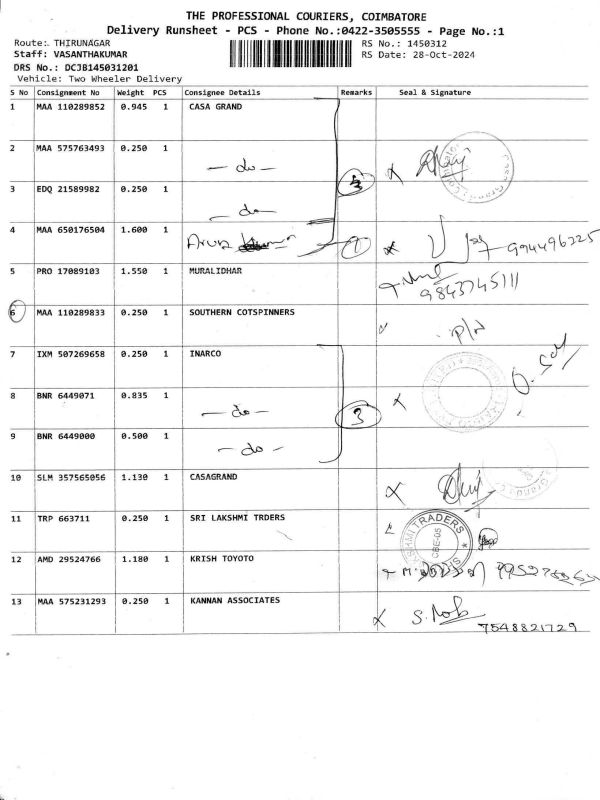 THE PROFESSIONAL COURIERS, COIMBATORE
Delivery Runsheet - PCS - Phone No.:0422-3505555 - Page No.:1
Route: THIRUNAGAR RS No.: 1450312
Staff: VASANTHAKUMAR RS Date: 28-Oct-2024
DRS No.: DCJB145031201
Vehicle: Two Wheeler Delivery
S No Consignment No Weight PCS Consignee Details Remarks Seal & Signature
1 MAA 110289852 0.945 1 CASA GRAND
2 MAA 575763493 0.250 1 - do -
3 EDQ 21589982 0.250 1 - do -
4 MAA 650176504 1.600 1 Arun 1
5 PRO 17089103 1.550 1 MURALIDHAR 9843745111
6 MAA 110289833 0.250 1 SOUTHERN COTSPINNERS P/N
7 IXM 507269658 0.250 1 INARCO
8 BNR 6449071 0.835 1 - do - 3
9 BNR 6449000 0.500 1 - do -
10 SLM 357565056 1.130 1 CASAGRAND
11 TRP 663711 0.250 1 SRI LAKSHMI TRDERS TRADERS CBE-05
12 AMD 29524766 1.180 1 KRISH TOYOTO
13 MAA 575231293 0.250 1 KANNAN ASSOCIATES 7548821729